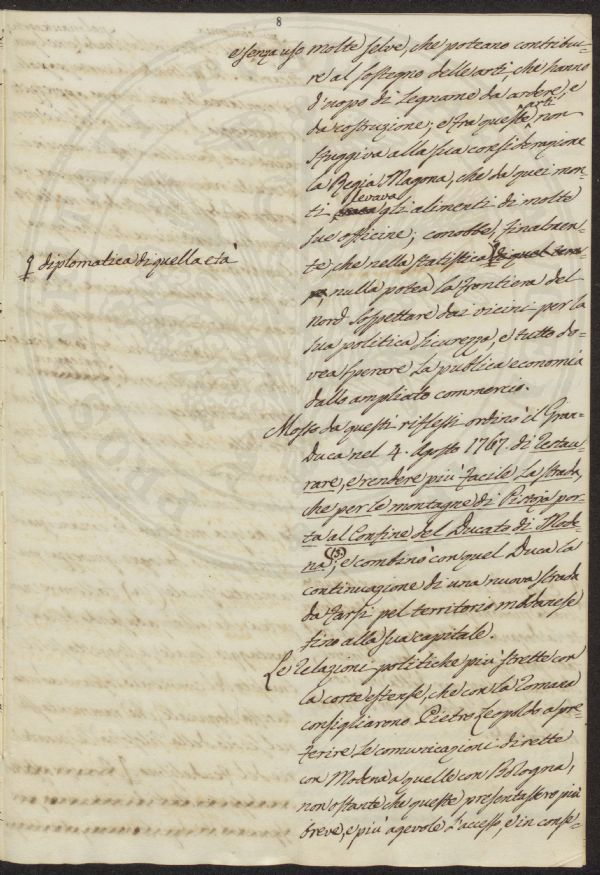 8
e senza uso molte selve, che poteano contribui-
re al sostegno delle arti, che hanno
d'uopo di legname da ardere, e
da costruzione; e tra queste arti non
sfuggiva alla sua considerazione
la Regia Magona, che da quei mon-
ti levava gli alimenti di molte
sue officine; conobbe, finalmen-
te che nella statistica di quel tem-
po, nulla potea la frontiera del
q diplomatica di quella età
nord sospettare dai vicini per la
sua politica sicurezza, e tutto do-
vea sperare la publica economia
dallo ampliato commercio.
Mosso da questi riflessi ordinò il Gran-
Duca nel 4. Agosto 1767. di restau-
rare, e rendere più facile la strada,
che per le montagne di Pistoja por-
ta al Confine del Ducato di Mode-
na (15.); e combinò con quel Duca la
continuazione di una nuova strada
da farsi pel territorio modanese
fino alla sua capitale.
Le relazioni politiche più strette con
la corte estense, che con la romana
consigliarono Pietro Leopoldo a pre-
ferire le comunicazioni dirette
con Modena a quelle con Bologna,
non ostante che queste presentassero più
breve, e più agevole l'accesso, e in conse-